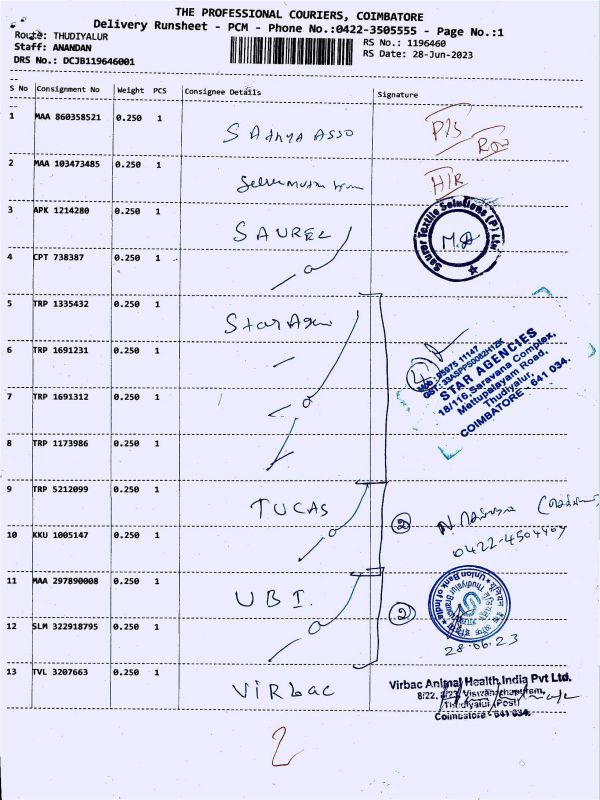 THE PROFESSIONAL COURIERS, COIMBATORE
Delivery Runsheet - PCM - Phone No.:0422-3505555 - Page No.:1
Route: THUDIYALUR
RS No.: 1196460
Staff: ANANDAN
RS Date: 28-Jun-2023
DRS No.: DCJB119646001
S No Consignment No Weight PCS Consignee Details Signature
1 MAA 860358521 0.250 1 SATHYA ASSO
2 MAA 103473485 0.250 1
3 APK 1214280 0.250 1 SAUREL
Saurer Textile Solutions (P) Ltd
4 CPT 738387 0.250 1
5 TRP 1335432 0.250 1 Star Agen
4
Mob: 95975 11147
STAR AGENCIES
18/116, Saravana Complex,
Mettupalayam Road,
Thudiyalur,
COIMBATORE - 641 034.
6 TRP 1691231 0.250 1
7 TRP 1691312 0.250 1
8 TRP 1173986 0.250 1
9 TRP 5212099 0.250 1 TUCAS
2
10 KKU 1005147 0.250 1
11 MAA 297890008 0.250 1 UBI.
2
Union Bank of India
28.06.23
12 SLM 322918795 0.250 1
13 TVL 3207663 0.250 1 Virbac
Virbac Animal Health India Pvt Ltd.
Thudiyalur (Post)
Coimbatore - 641 034.
2